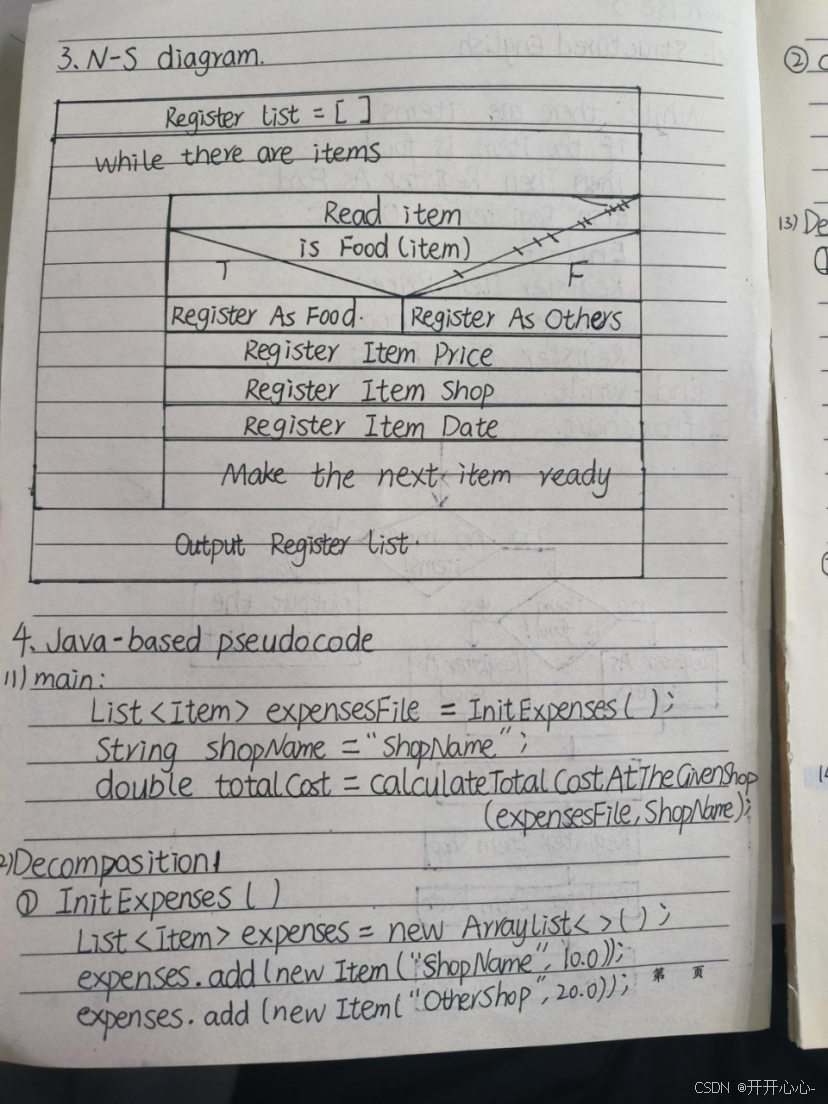 3. N-S diagram.
Register list = [ ]
while there are items
Read item
is Food (item)
T
F
Register As Food.
Register As Others
Register Item Price
Register Item Shop
Register Item Date
Make the next item ready
Output Register list.
4. Java-based pseudocode
(1) main:
List <Item> expensesFile = InitExpenses( );
String shopName = "ShopName";
double totalCost = calculateTotalCostAtTheGivenShop
(expensesFile, ShopName);
2) Decomposition1
① InitExpenses ( )
List <Item> expenses = new ArrayList< >( );
expenses.add (new Item ("ShopName", 10.0));
expenses.add (new Item("OtherShop", 20.0));
第 页
②
(3) De
CSDN @开开心心-